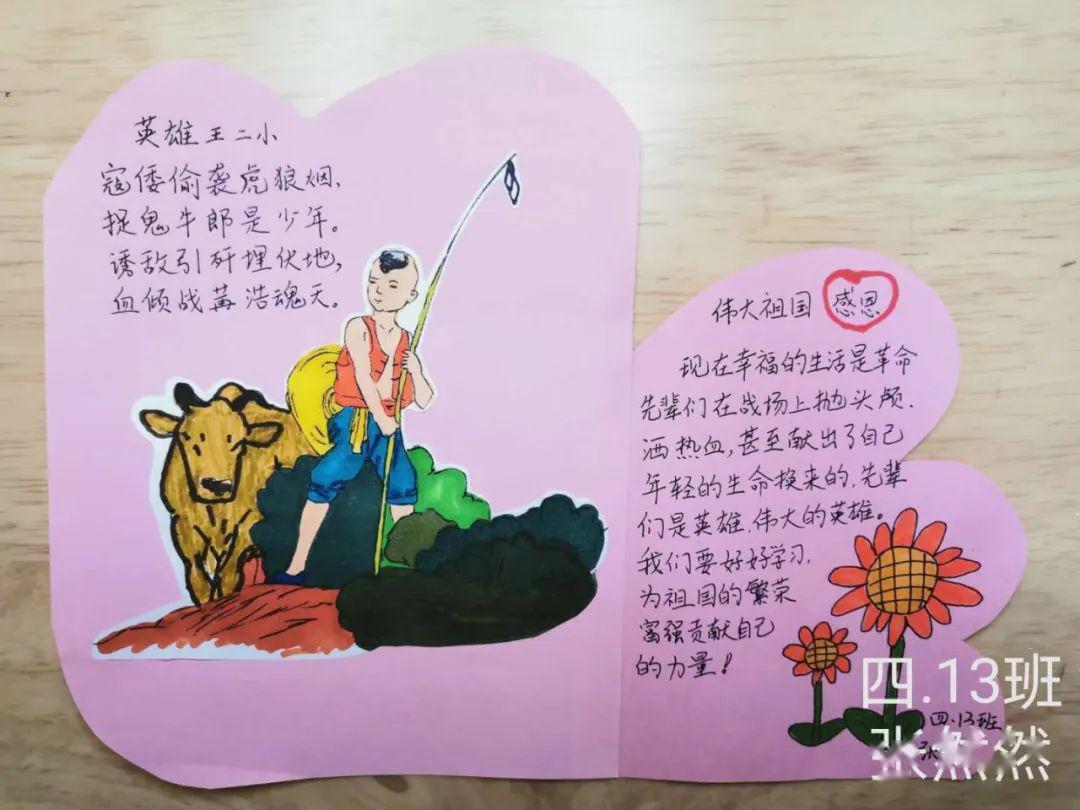 英雄王二小
寇倭偷袭虎狼烟,
捉鬼牛郎是少年。
诱敌引歼埋伏地,
血倾战苒浩魂天。
伟大祖国 感恩
现在幸福的生活是革命
先辈们在战场上抛头颅.
洒热血,甚至献出了自己
年轻的生命换来的,先辈
们是英雄,伟大的英雄。
我们要好好学习,
为祖国的繁荣
富强贡献自己
的力量!
四.13班
四.13班
张然然